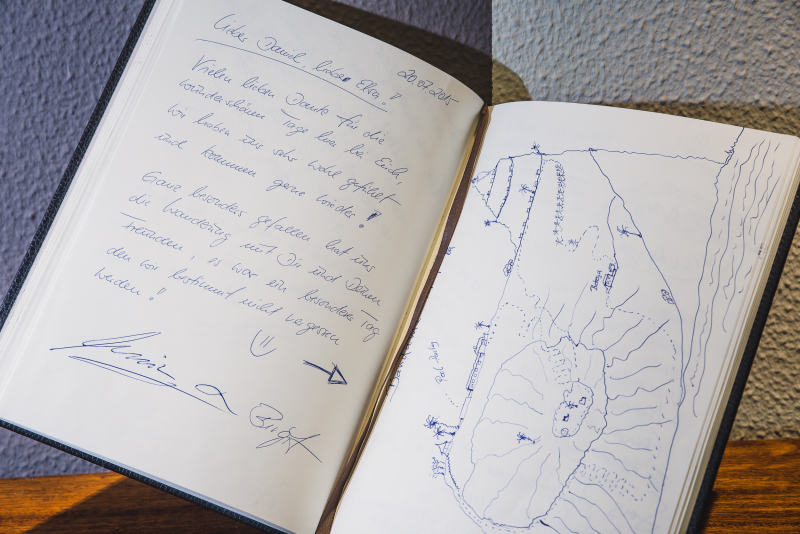 Lieber Daniel, liebe Elsa!
20.07.2015
Vielen lieben Dank für die
wunderschönen Tage hier bei Euch,
wir haben uns sehr wohl gefühlt
und kommen gerne wieder!
Ganz besonders gefallen hat uns
die Wanderung mit Dir und Deinen
Freunden, es war ein besonderer Tag
den wir bestimmt nicht vergessen
werden!